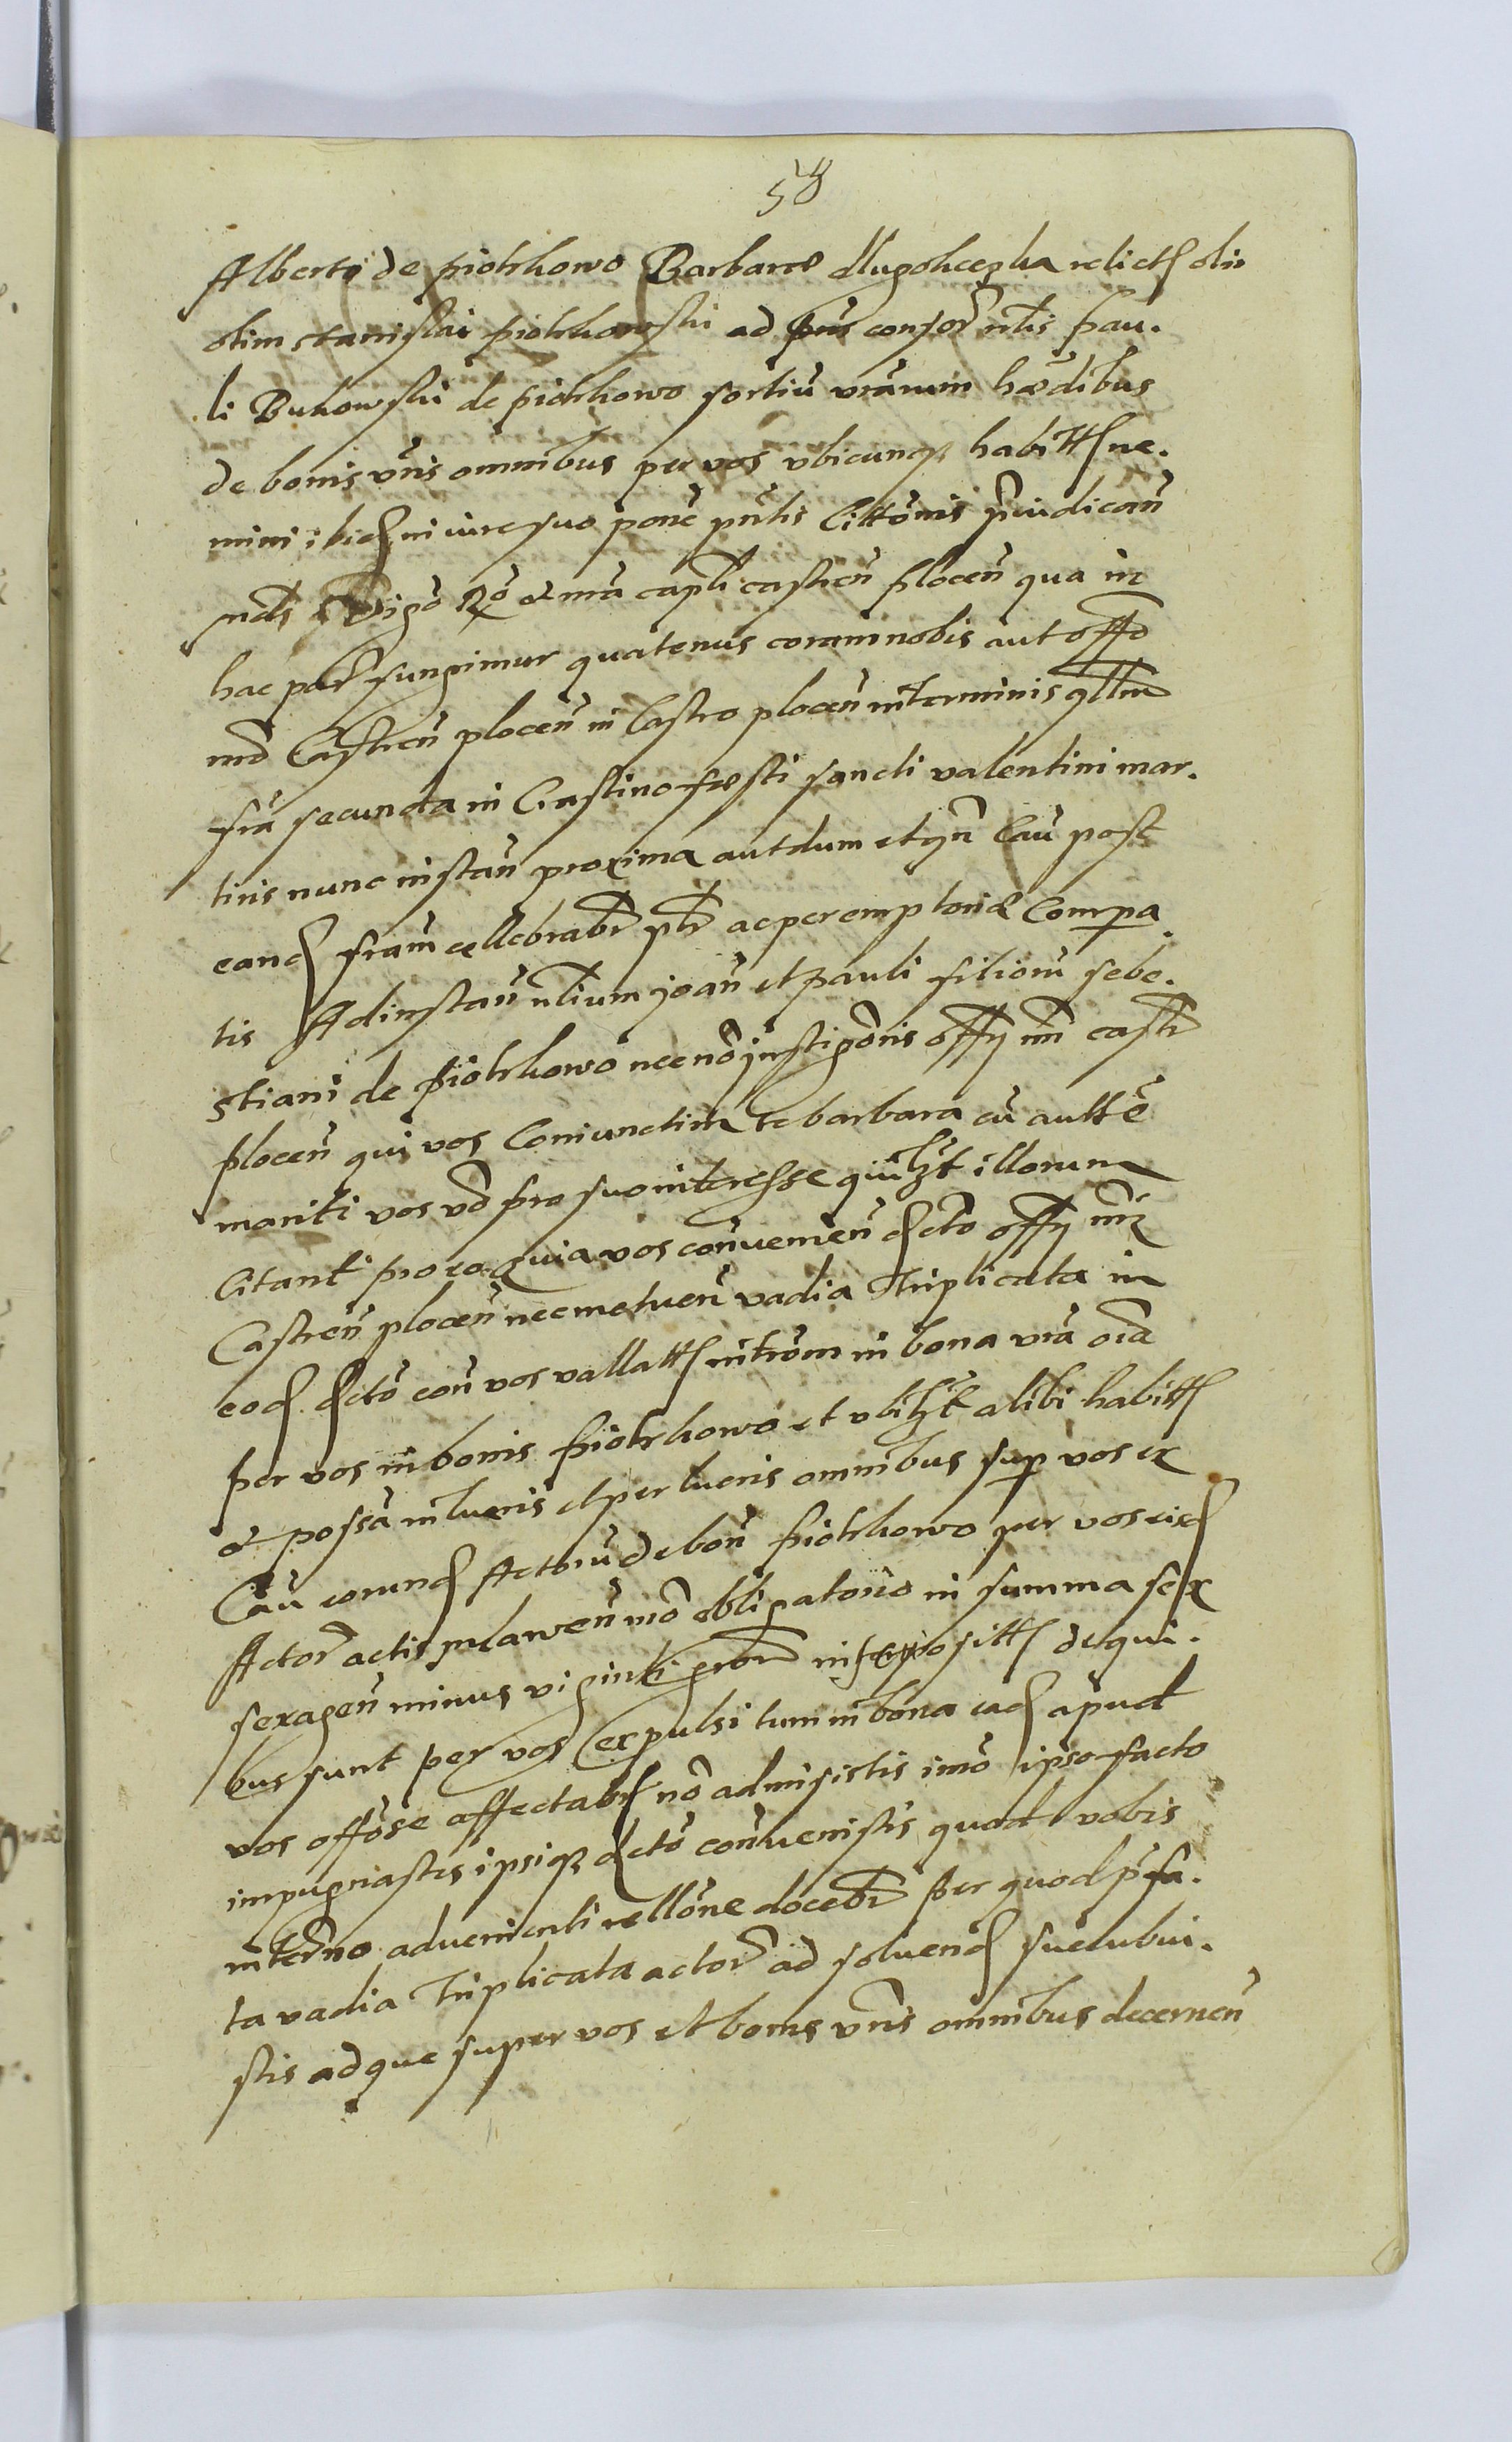 58
Alberto de piotrkowo Barbarae dlugoliczka relict olim
olim stanislai piotrkowski ad pns consor nlis pau.
li Bukowski de piotrkowo sortiu vranum haedibus
de bonis vris omnibus per vos vbicunq habitt ne.
mini ibid in iure suo pone pntis Cittonis priudican
Rö et mia capli castren plocen qua in
hac par fungimur quatenus coram nobis aut offo
nro Castren plocen in Castro plocen in terminis qllm
fria secunda in Crastino festi sancti valentini mar.
tiris nunc instan proxima aut dum et qn Cau post
eand friam cellebrabr ptr ac peremptoriae Compa.
tis Ad instan nlium joan et pauli filioru seba.
stiani de piotrkowo necno jnstigoris offy nri castr
plocen qui vos Coniunctim te barbara cu autte
mariti vos vo pro suo interesse quilzt illorum
Citant pro eo quia vos conuenien dcto offy nri
Castren plocen nec metuen vadia Triplicata in
eod dcto con vos vallatt introm in bona vra oia
per vos in bonis piotrkowo et vbilzt alibi habitt
et possa in lucris et per lucris omnibus sup vos ex
Cau eorund Actoru de bon piotrkowo per vos eisd
Actor actis mlawen mo obligatorio in summa sex
sexagen minus viginti gror inscriposittt de qui.
bus sunt per vos expulsi tum in bona ead apud
vos offose affectabt no admisistis imo ipso facto
impugnastis ipsiq dcto conuenistis quod vobis
in termno aduenienti rellone docebr per quod prfa.
ta vadia Triplicata actor ad soluend succubui.
stis adque super vos et bonis vris omnibus decernen